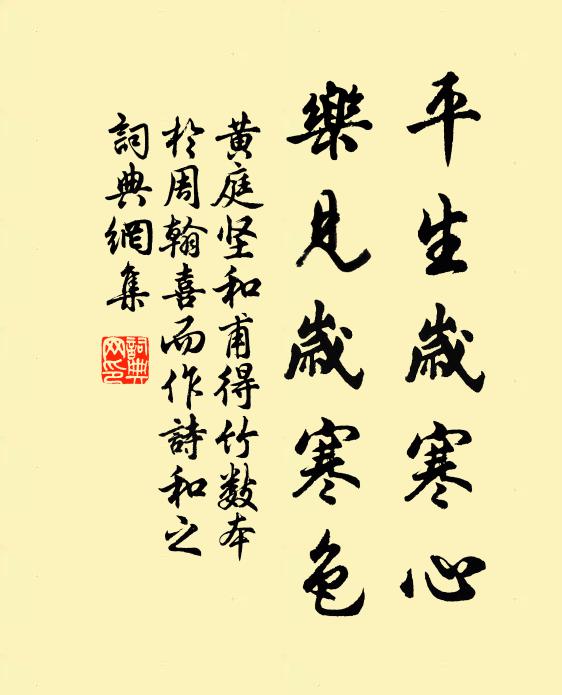 平生歲寒心
樂見歲寒色
黄庭坚和甫得竹数本
於周翰喜而作詩和之
詞典網集
詞典
网印